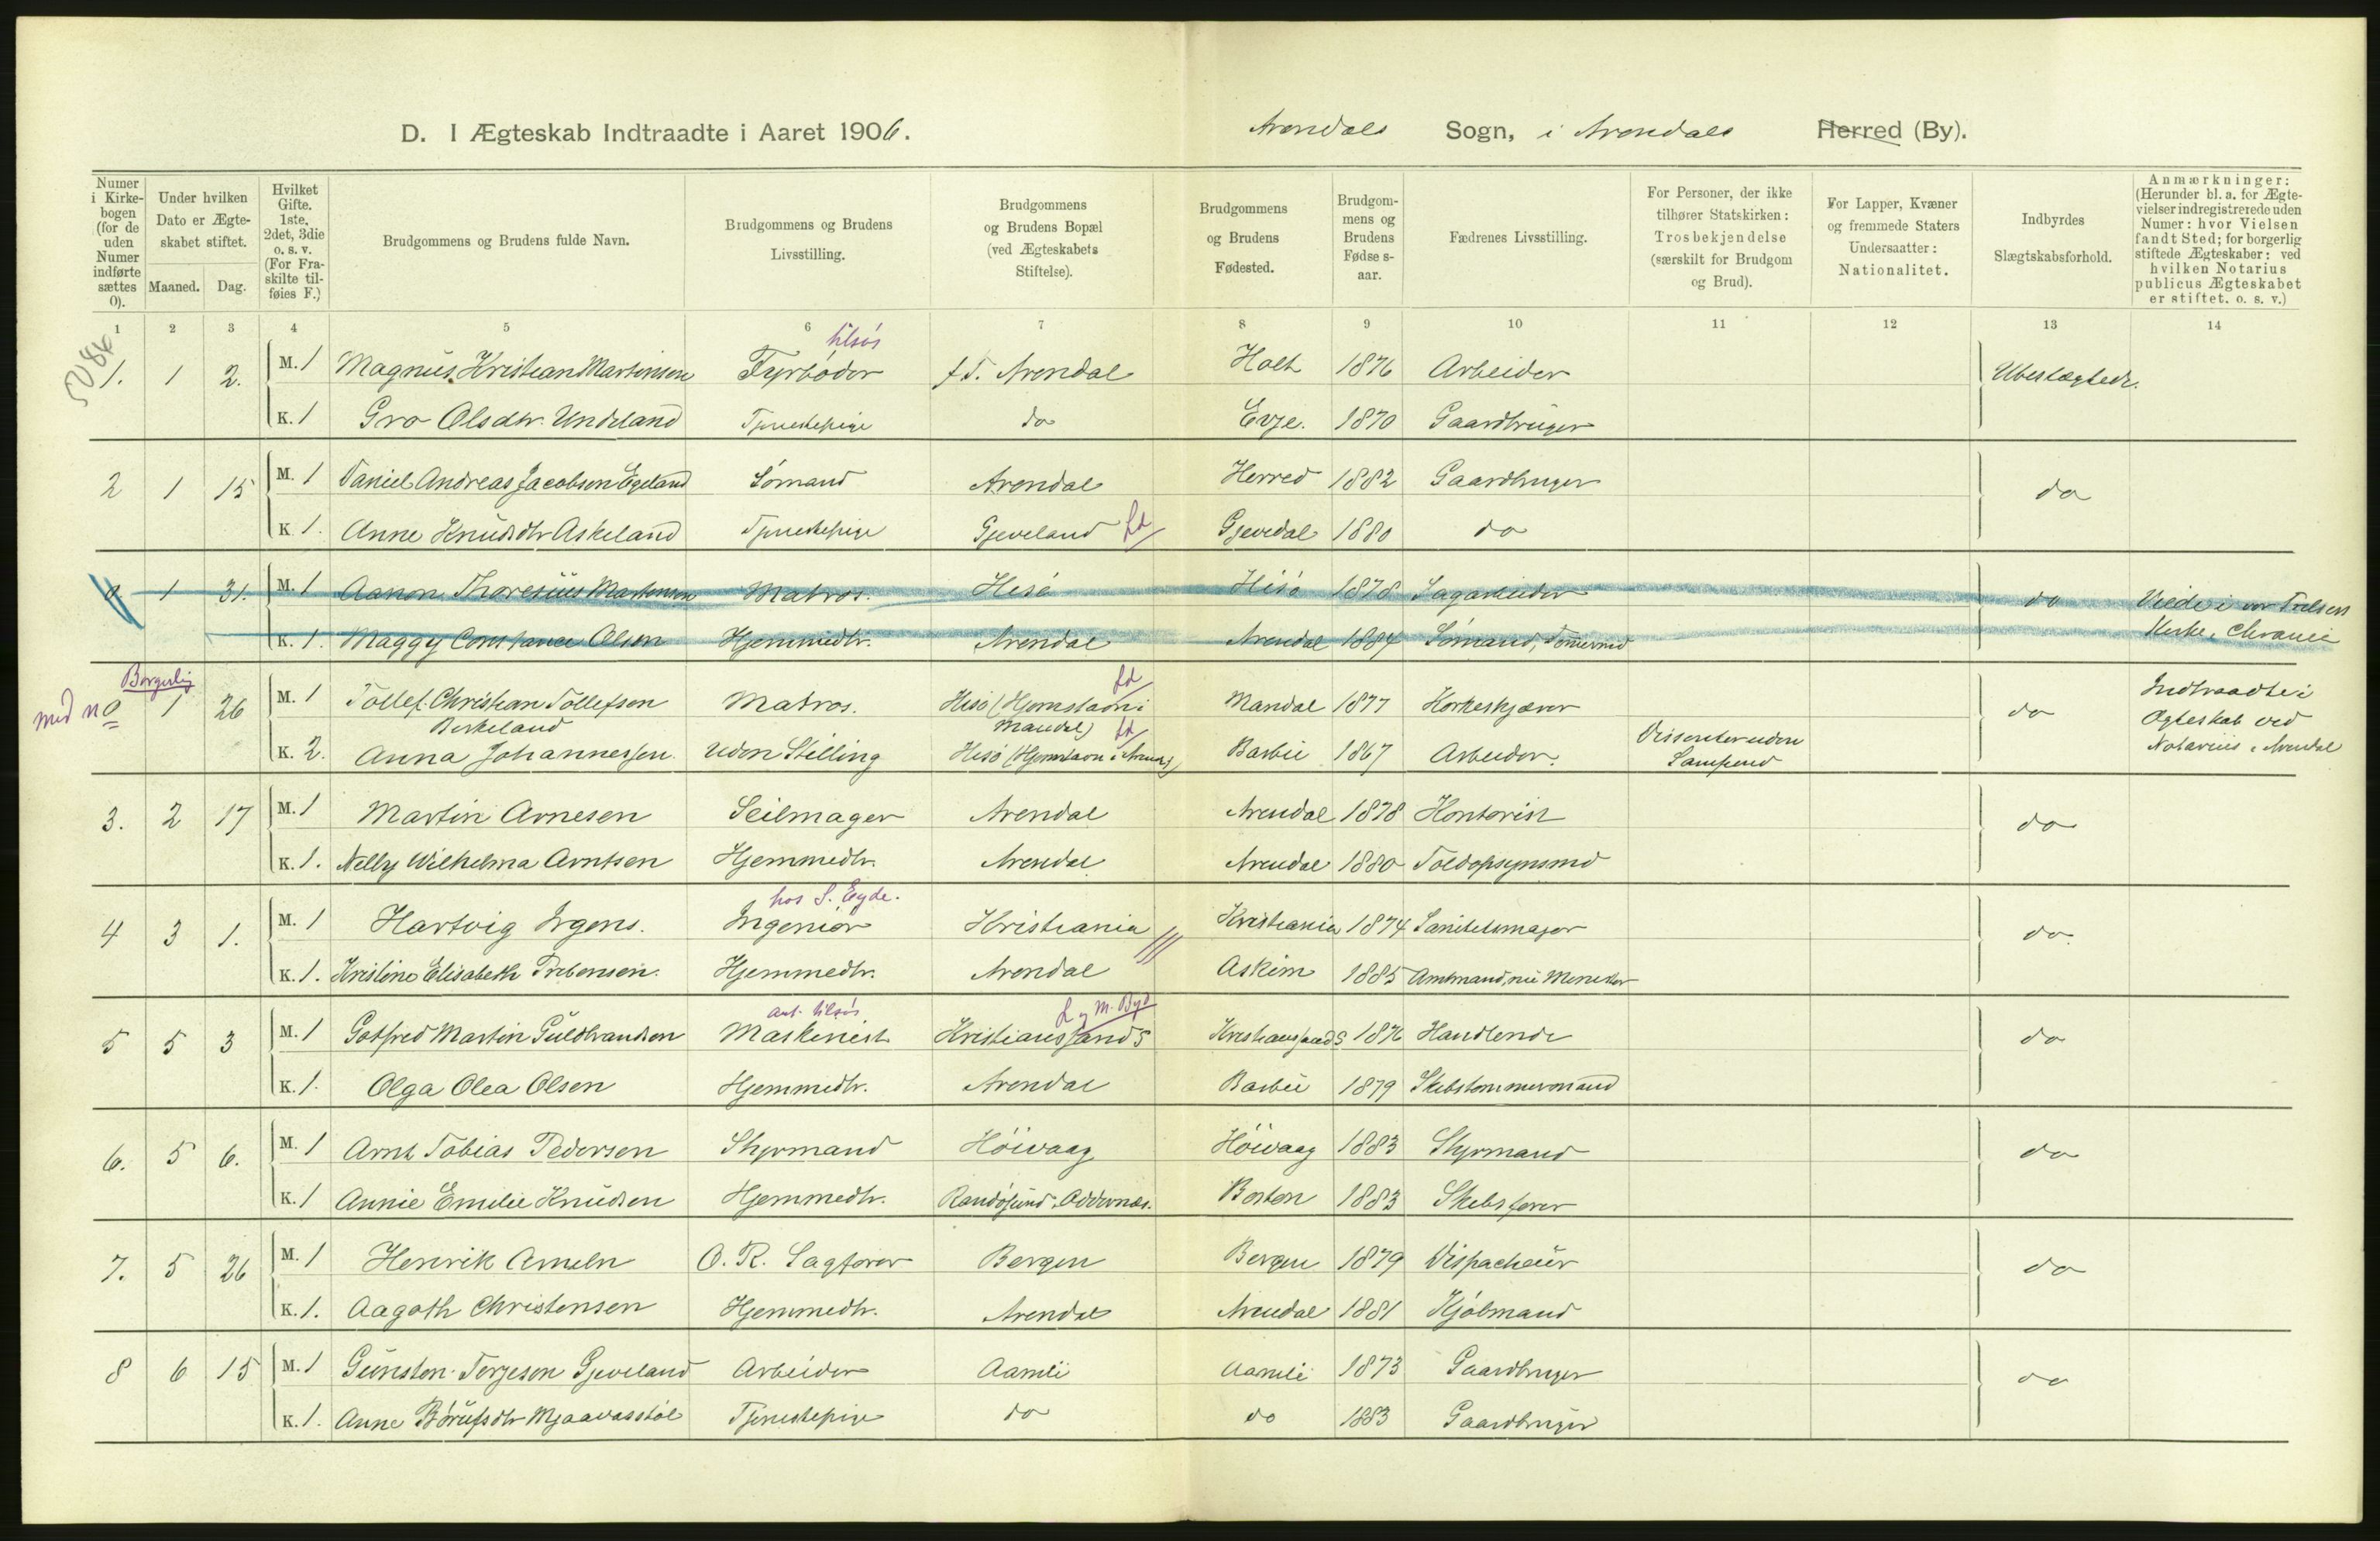 D. I Ægteskab Indtraadte i Aaret 1906.
Arendals Sogn, i Arendals Herred (By).
Numer i Kirkebogen (for de uden Numer indførte sættes 0).
Under hvilken Dato er Ægteskabet stiftet.
Maaned. Dag.
Hvilket Gifte. 1ste, 2det, 3die o. s. v. (For Fraskilte tilføies F.)
Brudgommens og Brudens fulde Navn.
Brudgommens og Brudens Livsstilling.
Brudgommens og Brudens Bopæl (ved Ægteskabets Stiftelse).
Brudgommens og Brudens Fødested.
Brudgommens og Brudens Fødselsaar.
Fædrenes Livsstilling.
For Personer, der ikke tilhører Statskirken: Trosbekjendelse (særskilt for Brudgom og Brud).
For Lapper, Kvæner og fremmede Staters Undersaatter: Nationalitet.
Indbyrdes Slægtskabsforhold.
Anmærkninger: (Herunder bl. a. for Ægtevielser indregistrerede uden Numer: hvor Vielsen fandt Sted; for borgerlig stiftede Ægteskaber: ved hvilken Notarius publicus Ægteskabet er stiftet. o. s. v.)
1 2 3 4 5 6 7 8 9 10 11 12 13 14
tilsøs
1. 1 2. M. 1 Magnus Kristian Martinsen Fyrbøder f.T. Arendal Holt 1876 Arbeider Ubeslægtede.
K. 1 Gro Olsdtr. Undeland Tjenestepige do Evje. 1870 Gaardbruger
2 1 15 M. 1 Daniel Andreas Jacobsen Egeland Sømand Arendal Herred 1882 Gaardbruger do
K. 1. Anne Knudsdtr Askeland Tjenestepige Gjeveland Ld Gjevedal 1880 do
0. 1 31. M. 1 Aanon Thoresius Martensen Matros. Hisø Hisø 1878 Sagarbeider do Viede i vor Frelsers
K. 1. Maggy Constance Olsen Hjemmedtr. Arendal Arendal 1884 Sømand, Tømermd Kirke, Chrania
Borgerlig
med n 0 1 26 M. 1 Tollef Christian Tollefsen Birkeland Matros. Hisø (Hjemstavn i Mandal) Ld Mandal 1877 Korkeskjærer do Indtraadte i Ægteskab ved Notarius i Arendal
K. 2. Anna Johannessen uden Stilling Hisø (Hjemstavn i Arendal) Ld Barbu 1867 Arbeider. Dissenter uden Samfund
3. 2 17 M. 1 Martin Arnesen Seilmager Arendal Arendal 1878 Kontorist do
K. 1. Nelly Wilhelma Arntsen Hjemmedtr. Arendal Arendal 1880 Toldopsynsmd
hos S. Eyde.
4 3 1. M. 1 Hartvig Irgens. Ingeniør Kristiania Kristiania 1874 Sanitetsmajor do
K. 1. Kristine Elisabeth Prebensen. Hjemmedtr. Arendal Askim 1885 Amtmand, nu Minister
ant. tilsøs L. M. Byd
5 5 3 M. 1 Gotfred Martin Guldbrandsen Maskinist Kristianssand S Kristianssand S 1876 Handlende do
K. 1. Olga Olea Olsen Hjemmedtr. Arendal Barbu 1879 Skibstømmermand
6. 5 6. M. 1 Arnt Tobias Pedersen Styrmand Høivaag Høivaag 1883 Styrmand do
K. 1 Annie Emilie Knudsen Hjemmedtr. Randøsund Oddernæs. Boston 1883 Skibsfører
7. 5 26 M. 1 Henrik Ameln O. R. Sagfører Bergen Bergen 1879 Dispacheur do
K. 1. Aagoth Christensen Hjemmedtr. Arendal Arendal 1881 Kjøbmand
8 6 15 M. 1 Gunsten Terjesen Gjeveland Arbeider Aamli Aamli 1873 Gaardbruger do
K. 1. Anne Børufsdtr Mjaavasstøl Tjenestepige do do 1883 Gaardbruger